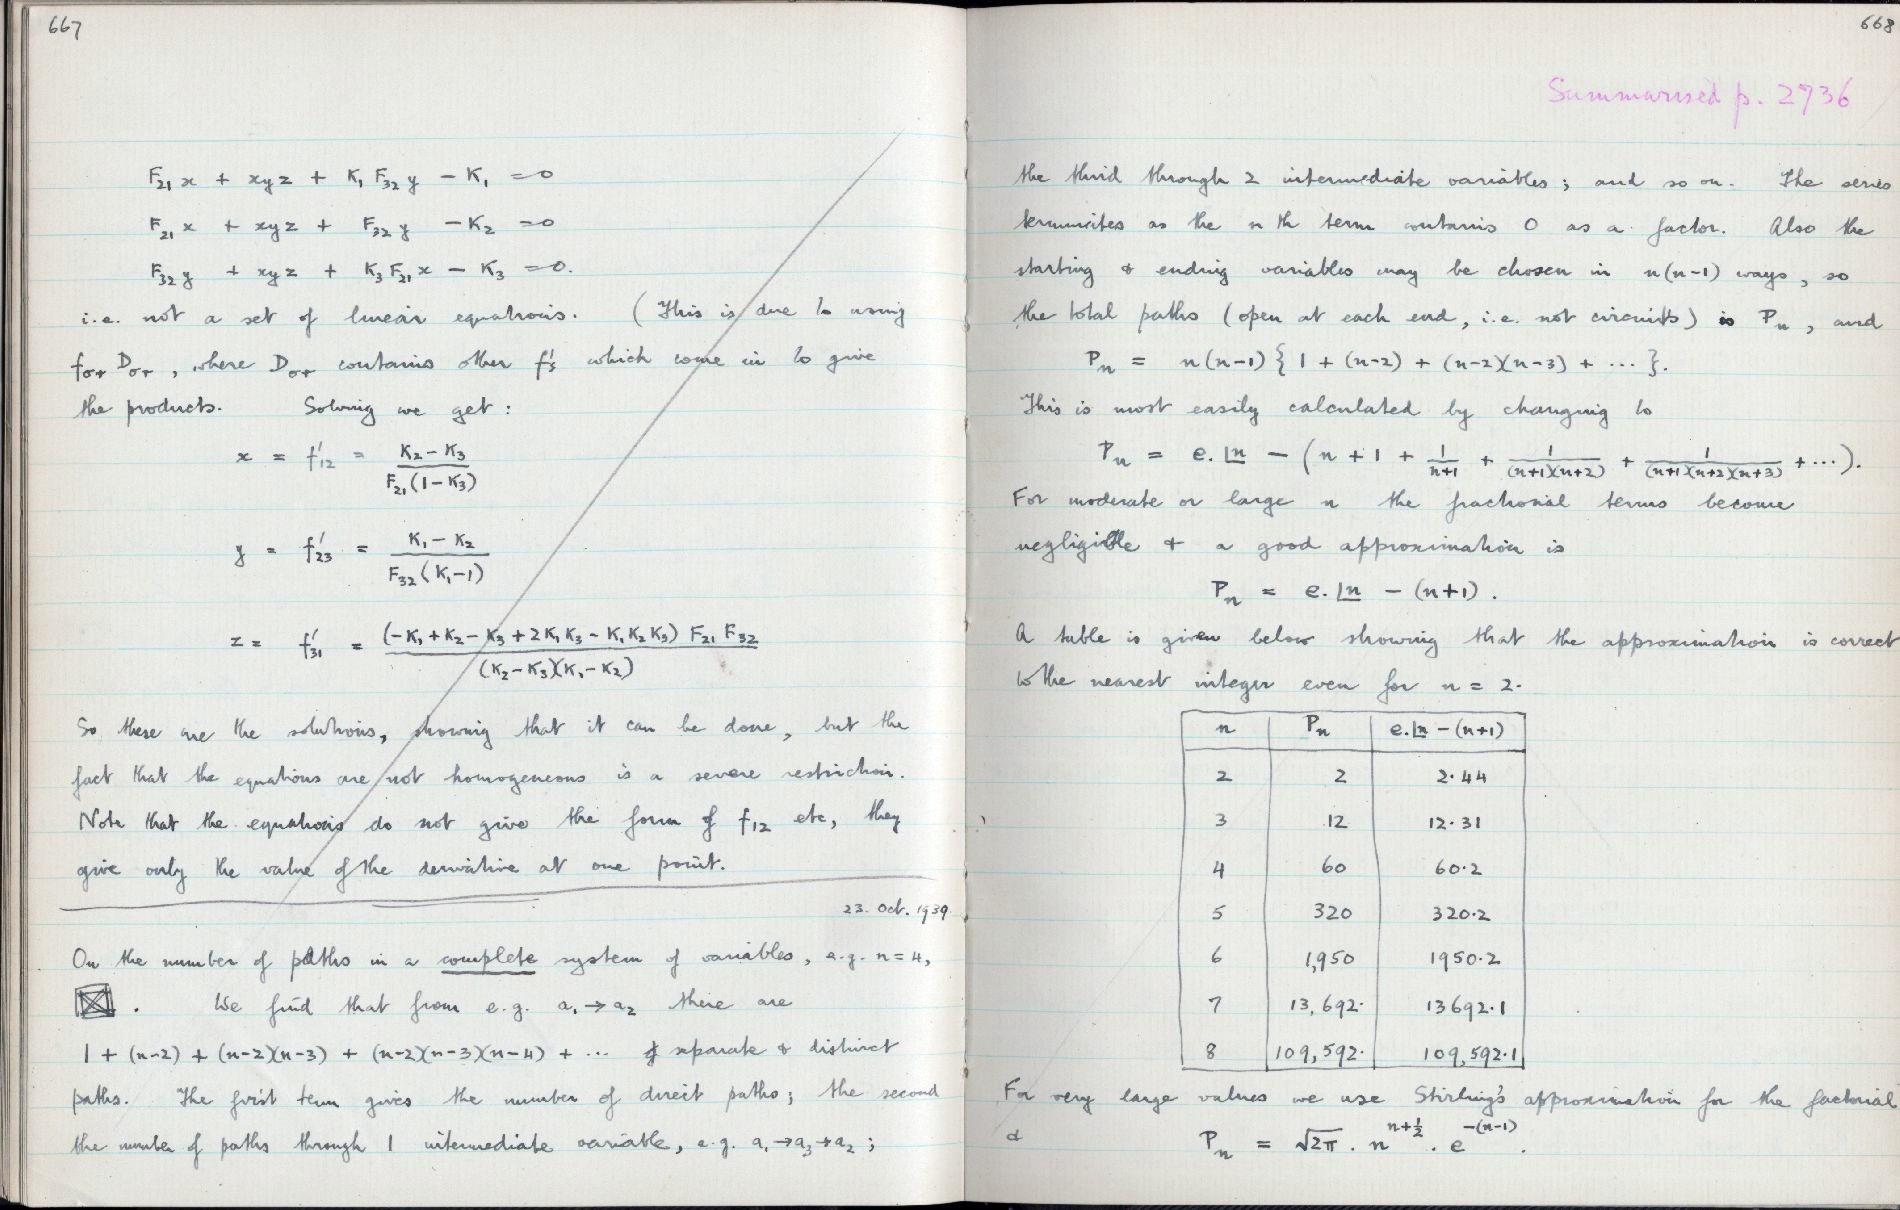 667
F₂₁ x + xyz + K₁ F₃₂ y - K₁ = 0
F₂₁ x + xyz + F₃₂ y - K₂ = 0
F₃₂ y + xyz + K₃ F₂₁ x - K₃ = 0.
i.e. not a set of linear equations. (This is due to using
fστ Dστ, where Dστ contains other f's which come in to give
the products. Solving we get:
x = f'₁₂ = (K₂ - K₃) / (F₂₁(1 - K₃))
y = f'₂₃ = (K₁ - K₂) / (F₃₂(K₁ - 1))
z = f'₃₁ = (-K₁ + K₂ - K₃ + 2K₁K₃ - K₁K₂K₃) F₂₁ F₃₂ / (K₂ - K₃)(K₁ - K₂)
So these are the solutions, showing that it can be done, but the
fact that the equations are not homogeneous is a severe restriction.
Note that the equations do not give the form of f₁₂ etc, they
give only the value of the derivative at one point.
23. Oct. 1939.
On the number of paths in a complete system of variables, e.g. n = 4,
. We find that from e.g. a₁ → a₂ there are
1 + (n-2) + (n-2)(n-3) + (n-2)(n-3)(n-4) + ... separate & distinct
paths. The first term gives the number of direct paths; the second
the number of paths through 1 intermediate variable, e.g. a₁ → a₃ → a₂;
668
Summarised p. 2736
the third through 2 intermediate variables; and so on. The series
terminates as the nth term contains 0 as a factor. Also the
starting & ending variables may be chosen in n(n-1) ways, so
the total paths (open at each end, i.e. not circuits) is Pₙ, and
Pₙ = n(n-1) { 1 + (n-2) + (n-2)(n-3) + ... }.
This is most easily calculated by changing to
Pₙ = e.|n - (n + 1 + 1/(n+1) + 1/((n+1)(n+2)) + 1/((n+1)(n+2)(n+3)) + ...).
For moderate or large n the fractional terms become
negligible & a good approximation is
Pₙ = e.|n - (n+1).
A table is given below showing that the approximation is correct
to the nearest integer even for n = 2.
n Pₙ e.|n - (n+1)
2 2 2.44
3 12 12.31
4 60 60.2
5 320 320.2
6 1,950 1950.2
7 13,692. 13692.1
8 109,592. 109,592.1
For very large values we use Stirling's approximation for the factorial
& Pₙ = √2π . n^(n+½) . e^-(n-1) .